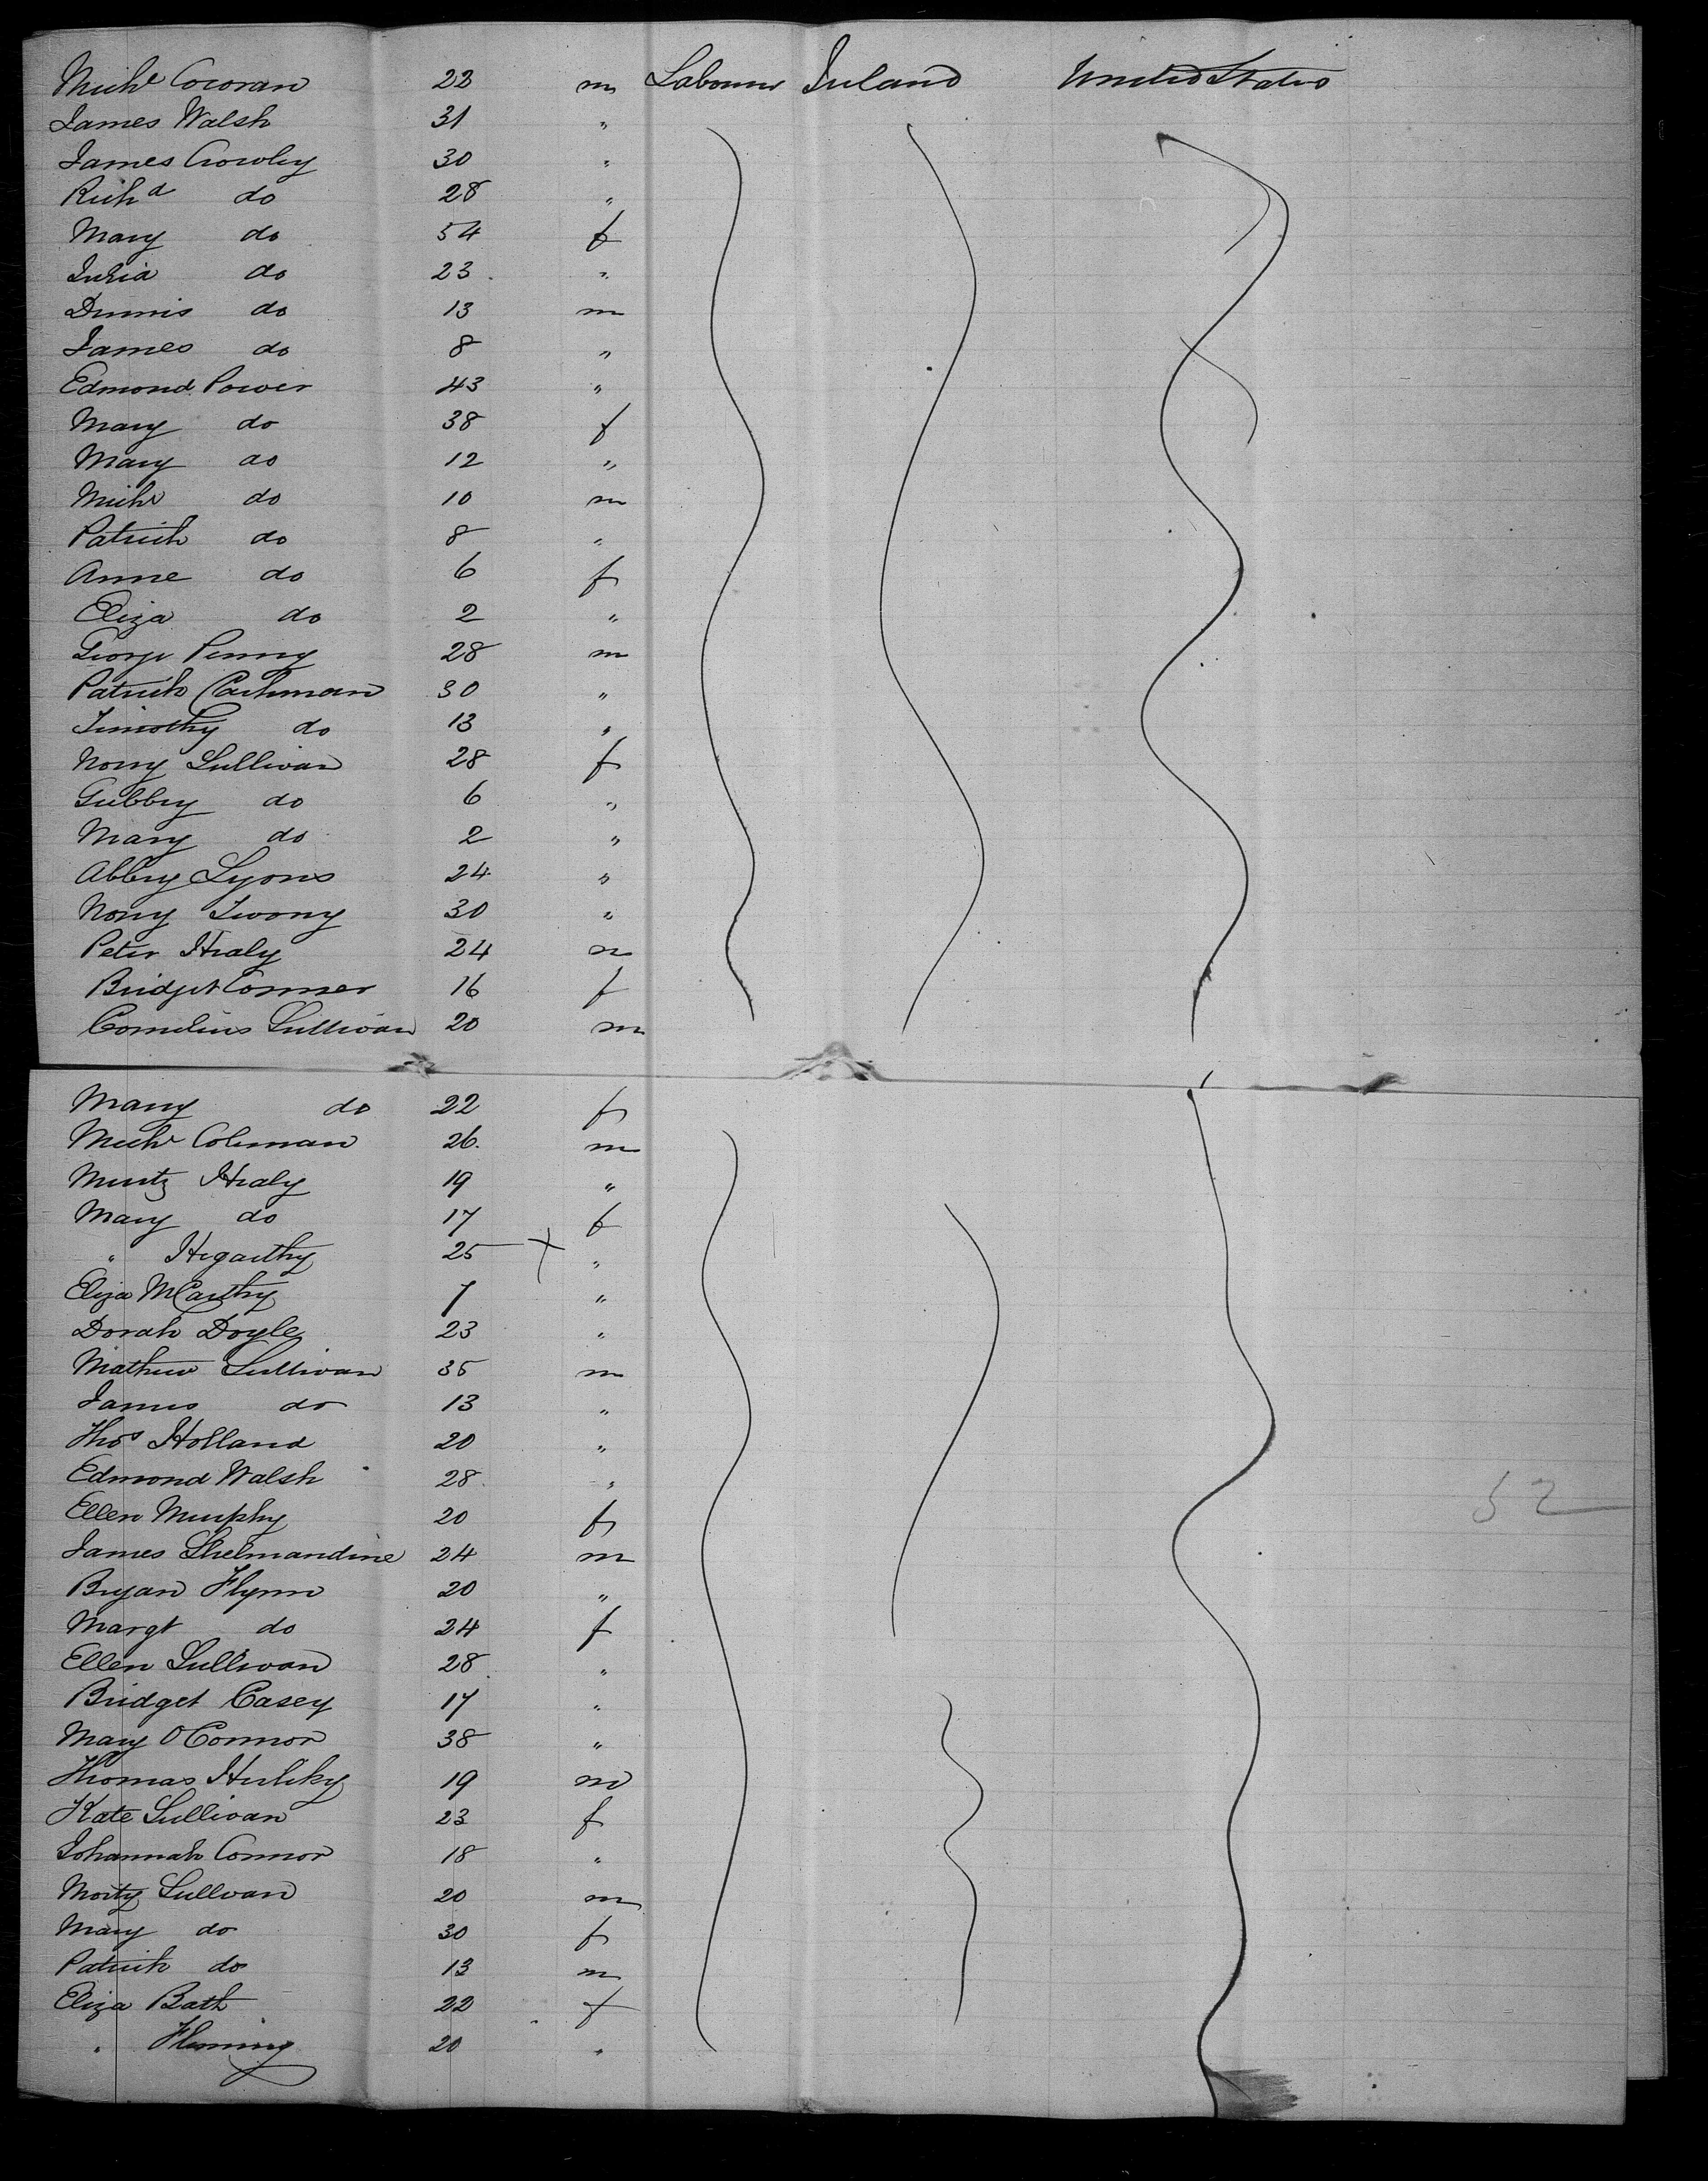 Michl Cocoran 22 m Labourer Ireland United States
James Walsh 31 "
James Crowley 30 "
Richd do 28 "
Mary do 54 f
Julia do 23 "
Dennis do 13 m
James do 8 "
Edmond Power 43 "
Mary do 38 f
Mary do 12 "
Michl do 10 m
Patrick do 8 "
Anne do 6 f
Eliza do 2 "
George Penny 28 m
Patrick Cashman 30 "
Timothy do 13 "
Nony Sullivan 28 f
Gubby do 6 "
Mary do 2 "
Abby Lyons 24 "
Nony Twomy 30 "
Peter Healy 24 m
Bridget Conner 16 f
Cornelius Sullivan 20 m
Mary do 22 f
Michl Coleman 26 m
Murtz Healy 19 "
Mary do 17 f
" Hegarthy 25 "
Eliza McCarthy 7 "
Dorah Doyle 23 "
Mathew Sullivan 35 m
James do 13 "
Thos Holland 20 "
Edmond Walsh 28 "
52
Ellen Murphy 20 f
James Shelmandine 24 m
Bryan Flynn 20 "
Margt do 24 f
Ellen Sullivan 28 "
Bridget Casey 17 "
Mary O'Connor 38 "
Thomas 19 m
Kate Sullivan 23 f
Johannah Connor 18 "
Morty Sullvan 20 m
Mary do 30 f
Patrick do 13 m
Eliza Bath 22 f
" Fleming 20 "